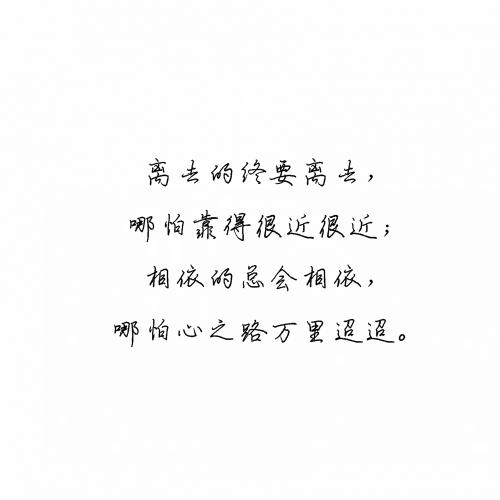 离去的终要离去，
哪怕靠得很近很近；
相依的总会相依，
哪怕心之路万里迢迢。